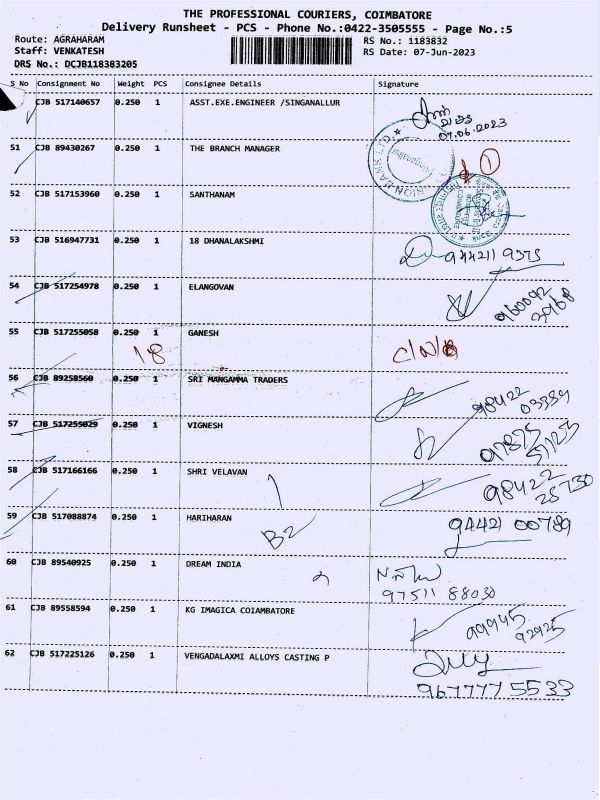 THE PROFESSIONAL COURIERS, COIMBATORE
Delivery Runsheet - PCS - Phone No.:0422-3505555 - Page No.:5
Route: AGRAHARAM RS No.: 1183832
Staff: VENKATESH RS Date: 07-Jun-2023
DRS No.: DCJB118383205
S No Consignment No Weight PCS Consignee Details Signature
CJB 517140657 0.250 1 ASST.EXE.ENGINEER /SINGANALLUR
07.06.2023
51 CJB 89430267 0.250 1 THE BRANCH MANAGER
52 CJB 517153960 0.250 1 SANTHANAM
53 CJB 516947731 0.250 1 18 DHANALAKSHMI
94421 9375
54 CJB 517254978 0.250 1 ELANGOVAN
55 CJB 517255058 0.250 1 GANESH
18
56 CJB 89258560 0.250 1 SRI MANGAMMA TRADERS
98422
03389
57 CJB 517255029 0.250 1 VIGNESH
58 CJB 517166166 0.250 1 SHRI VELAVAN
98422
25730
59 CJB 517088874 0.250 1 HARIHARAN
94421 00789
B2
60 CJB 89540925 0.250 1 DREAM INDIA
97511 88030
61 CJB 89558594 0.250 1 KG IMAGICA COIAMBATORE
99945
92925
62 CJB 517225126 0.250 1 VENGADALAXMI ALLOYS CASTING P
967777 5533